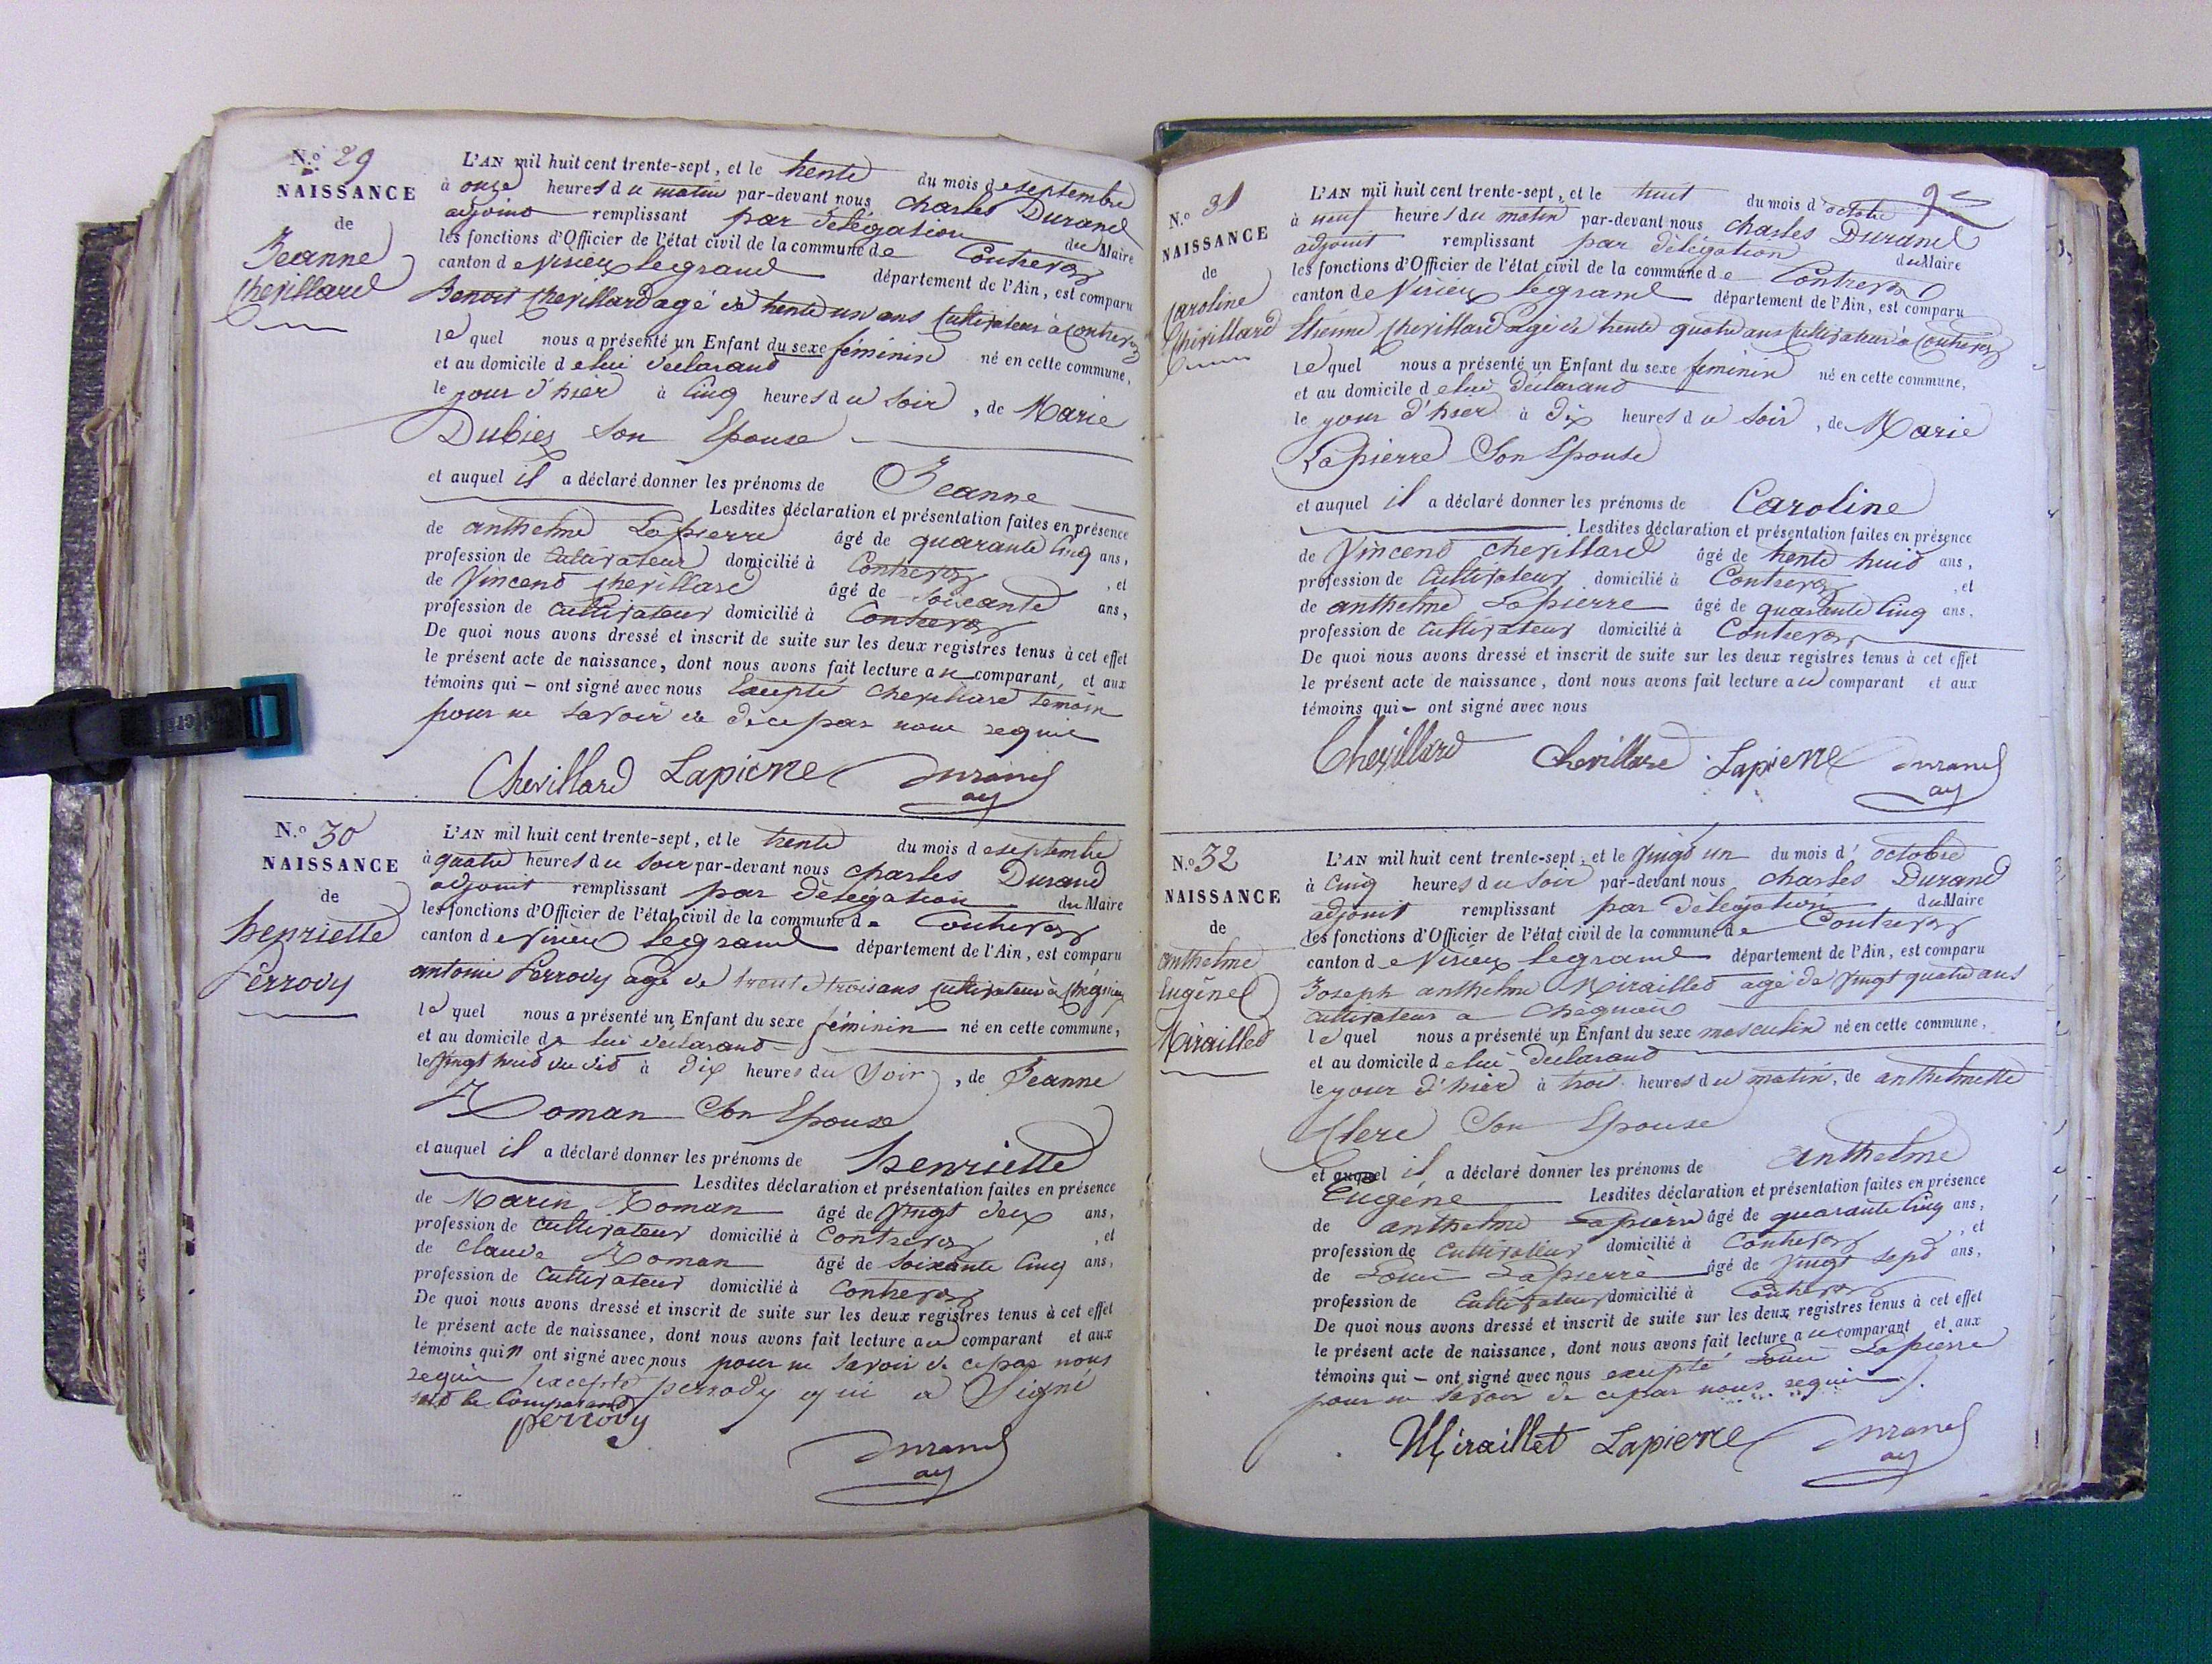 N.º 29
NAISSANCE
de
Jeanne
Chevillard
L'AN mil huit cent trente-sept, et le trente du mois de septembre
à onze heures du matin par-devant nous Charles Durand
adjoint remplissant par délégation du Maire
les fonctions d'Officier de l'état civil de la commune de Contrevoz
canton de Virieu legrand département de l'Ain, est comparu
Benoit Chevillard agé de trente un ans Cultivateur à Contrevoz
lequel nous a présenté un Enfant du sexe féminin né en cette commune,
et au domicile de lui déclarant
le jour d'hier à Cinq heures du Soir, de Marie
Dubiez Son Epouse
et auquel il a déclaré donner les prénoms de Jeanne
Lesdites déclaration et présentation faites en présence
de anthelme Lapierre âgé de quarante Cinq ans,
profession de Cultivateur domicilié à Contrevoz, et
de Vincend Chevillard âgé de Soixante ans,
profession de Cultivateur domicilié à Contrevoz
De quoi nous avons dressé et inscrit de suite sur les deux registres tenus à cet effet
le présent acte de naissance, dont nous avons fait lecture au comparant, et aux
témoins qui – ont signé avec nous Chevillard témoin
pour ne Savoir de ce par nous requis
Chevillard Lapierre Durand
adj
N.º 30
NAISSANCE
de
henriette
Perrody
L'AN mil huit cent trente-sept, et le trente du mois de septembre
à quatre heures du Soir par-devant nous Charles Durand
adjoint remplissant par délégation du Maire
les fonctions d'Officier de l'état civil de la commune de Contrevoz
canton de Virieu legrand département de l'Ain, est comparu
antoine Perrody agé de trente trois ans Cultivateur à Chegnieu
lequel nous a présenté un Enfant du sexe féminin né en cette commune,
et au domicile de lui déclarant
le Vingt huit du dit à Dix heures du Soir, de Jeanne
Roman Son Epouse
et auquel il a déclaré donner les prénoms de henriette
Lesdites déclaration et présentation faites en présence
de Marin Roman âgé de Vingt deux ans,
profession de Cultivateur domicilié à Contrevoz, et
de Claude Roman âgé de Soixante Cinq ans,
profession de Cultivateur domicilié à Contrevoz
De quoi nous avons dressé et inscrit de suite sur les deux registres tenus à cet effet
le présent acte de naissance, dont nous avons fait lecture au comparant et aux
témoins qui n ont signé avec nous pour ne Savoir de ce par nous
requis excepté perrody qui a Signé
le Comparant
perrody
Durand
adj
92
N.º 31
NAISSANCE
de
Caroline
Chevillard
L'AN mil huit cent trente-sept, et le huit du mois d'octobre
à neuf heures du matin par-devant nous Charles Durand
adjoint remplissant par délégation du Maire
les fonctions d'Officier de l'état civil de la commune de Contrevoz
canton de Virieu legrand département de l'Ain, est comparu
Etienne Chevillard agé de trente quatre ans Cultivateur à Contrevoz
lequel nous a présenté un Enfant du sexe féminin né en cette commune,
et au domicile de lui déclarant
le jour d'hier à Dix heures du Soir, de Marie
Lapierre Son Epouse
et auquel il a déclaré donner les prénoms de Caroline
Lesdites déclaration et présentation faites en présence
de Vincend Chevillard âgé de trente huit ans,
profession de Cultivateur domicilié à Contrevoz, et
de anthelme Lapierre âgé de quarante Cinq ans.
profession de Cultivateur domicilié à Contrevoz
De quoi nous avons dressé et inscrit de suite sur les deux registres tenus à cet effet
le présent acte de naissance, dont nous avons fait lecture au comparant et aux
témoins qui – ont signé avec nous
Chevillard Chevillard Lapierre Durand
adj
N.º 32
NAISSANCE
de
anthelme
Eugène
Miraillet
L'AN mil huit cent trente-sept, et le Vingt un du mois d' octobre
à Cinq heures du Soir par-devant nous Charles Durand
adjoint remplissant par délégation du Maire
les fonctions d'Officier de l'état civil de la commune de Contrevoz
canton de Virieu legrand département de l'Ain, est comparu
Joseph anthelme Miraillet agé de Vingt quatre ans
Cultivateur a Chegnieu
lequel nous a présenté un Enfant du sexe masculin né en cette commune,
et au domicile de lui déclarant
le jour d'hier à trois heures du matin, de anthelmette
Clerc Son Epouse
et auquel il a déclaré donner les prénoms de anthelme
Eugéne Lesdites déclaration et présentation faites en présence
de anthelme Lapierre âgé de quarante Cinq ans,
profession de Cultivateur domicilié à Contrevoz, et
de Louis Lapierre âgé de Vingt Sept ans,
profession de Cultivateur domicilié à Contrevoz
De quoi nous avons dressé et inscrit de suite sur les deux registres tenus à cet effet
le présent acte de naissance, dont nous avons fait lecture au comparant et aux
témoins qui – ont signé avec nous excepté Louis Lapierre
pour ne Savoir de ce par nous requis
Miraillet Lapierre Durand
adj